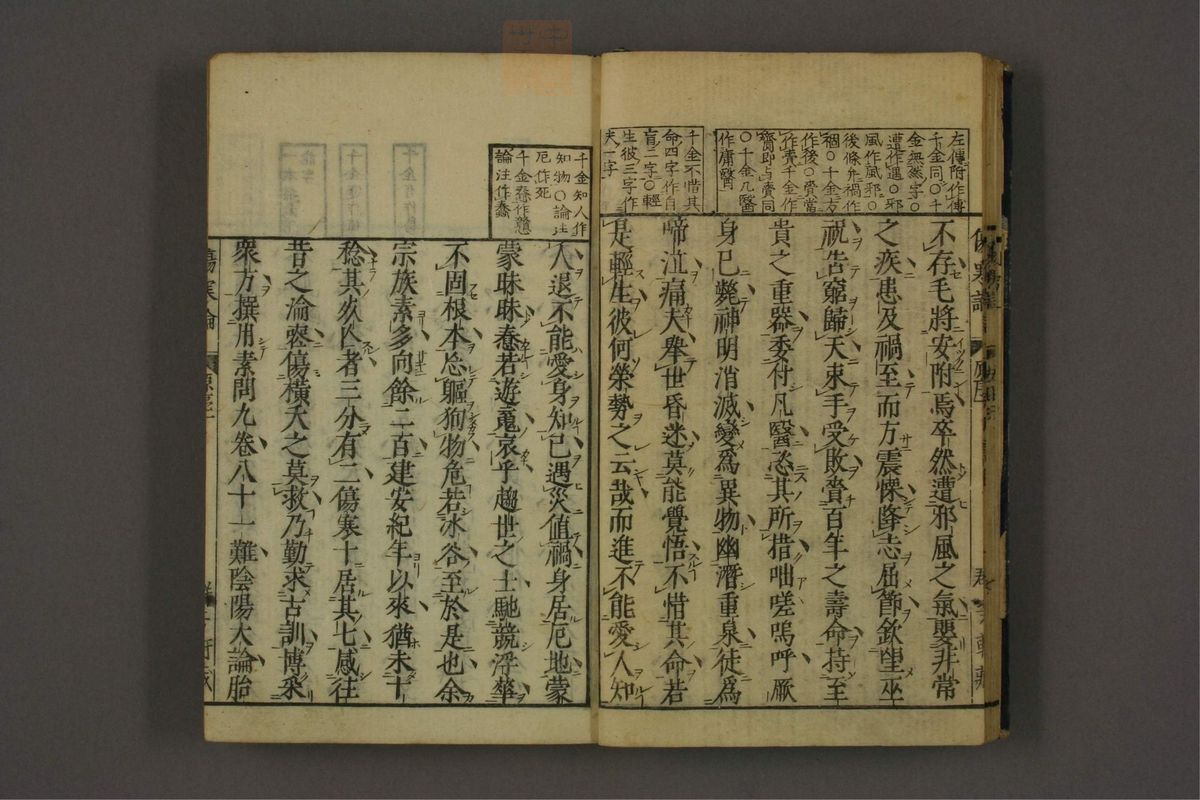 左傳附作傳
千金同〇千
金無然字〇
遭作遇〇邪
風作風邪〇
後條幷禍作
禍〇千金方
作後〇賷當
作賷千金作
齎即古賷同
〇千金凡醫
作庸醫
千金不惜其
命四字作自
盲二字〇輕
生彼三字作
夫一字
不存毛將安附焉卒然遭邪風之氣嬰非常
之疾患及禍至而方震慄降志屈節欽望巫
祝告窮歸天束手受敗賫百年之壽命持至
貴之重器委付凡醫恣其所措咄嗟嗚呼厥
身已斃神明消滅變爲異物幽潛重泉徒爲
啼泣痛夫舉世昏迷莫能覺悟不惜其命若
是輕生彼何榮勢之云哉而進不能愛人知
千金知人作
知物〇論注
厄作死
千金惷作戆
論注作蠢
人退不能愛身知己遇災值禍身居厄地蒙
蒙昧昧惷若遊䰟哀乎趨世之士馳競浮華
不固根本忘軀徇物危若冰谷至於是也余
宗族素多向餘二百建安紀年以來猶未十
稔其死亾者三分有二傷寒十居其七感往
昔之淪喪傷橫夭之莫救乃勤求古訓博采
衆方撰用素問九卷八十一難陰陽大論胎
傷寒論